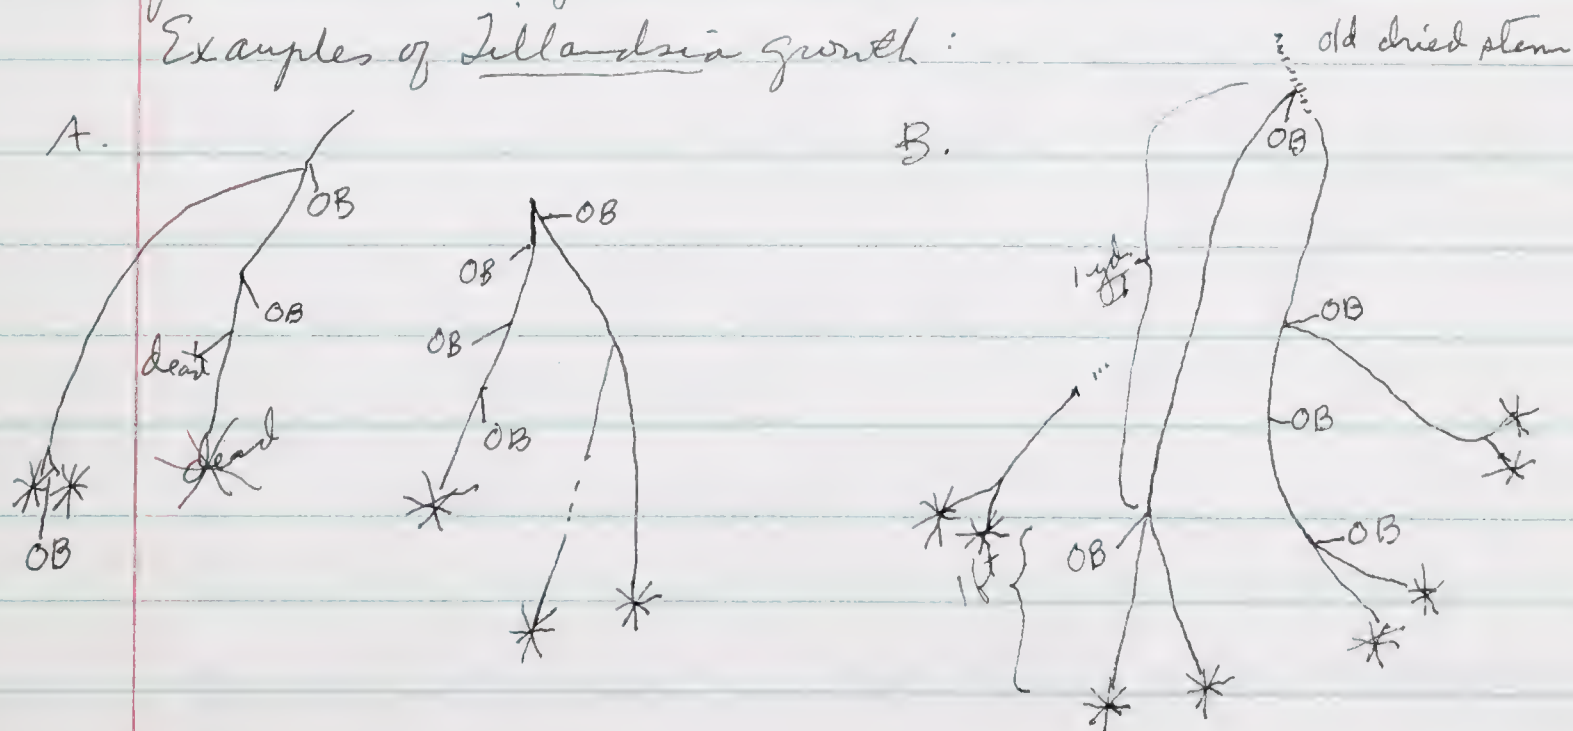 Examples of Tillandsia growth :
old dried stem
A.
OB
OB
dead
dead
OB
OB
OB
OB
OB
B.
OB
1 yd.
OB
OB
OB
OB
1 ft